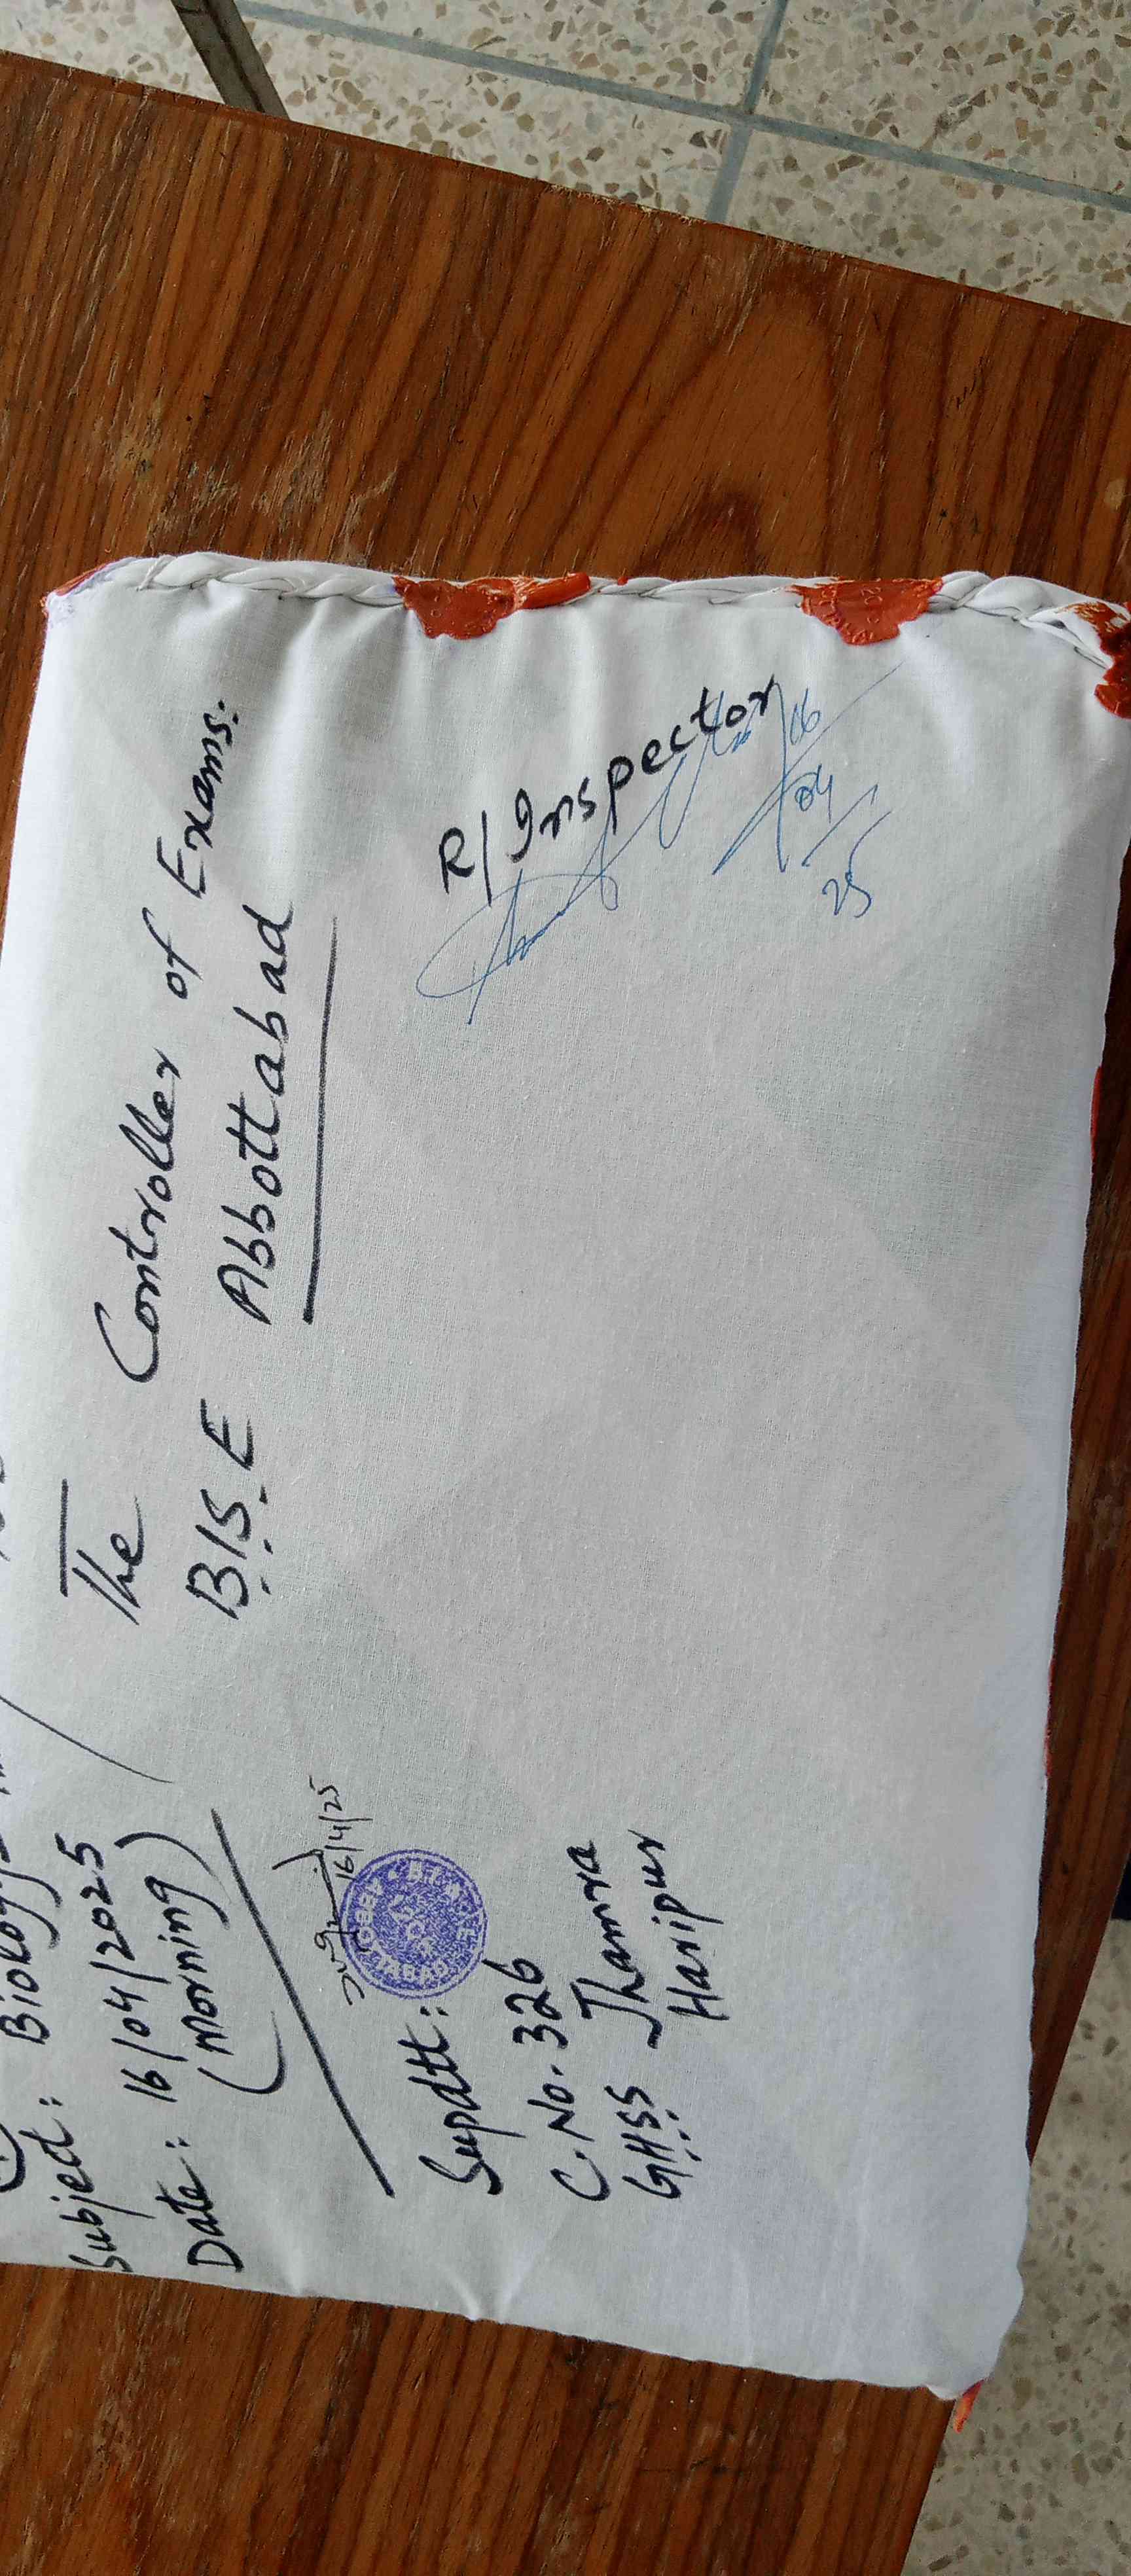 Subject: Biology
Date: 16/04/2025
(Morning)
The Controller of Exams:
B.I.S.E Abbottabad
16/4/25
Supdtt:
C.No. 326
GHSS Jhamra
Haripur
R/Inspector
16/04/25